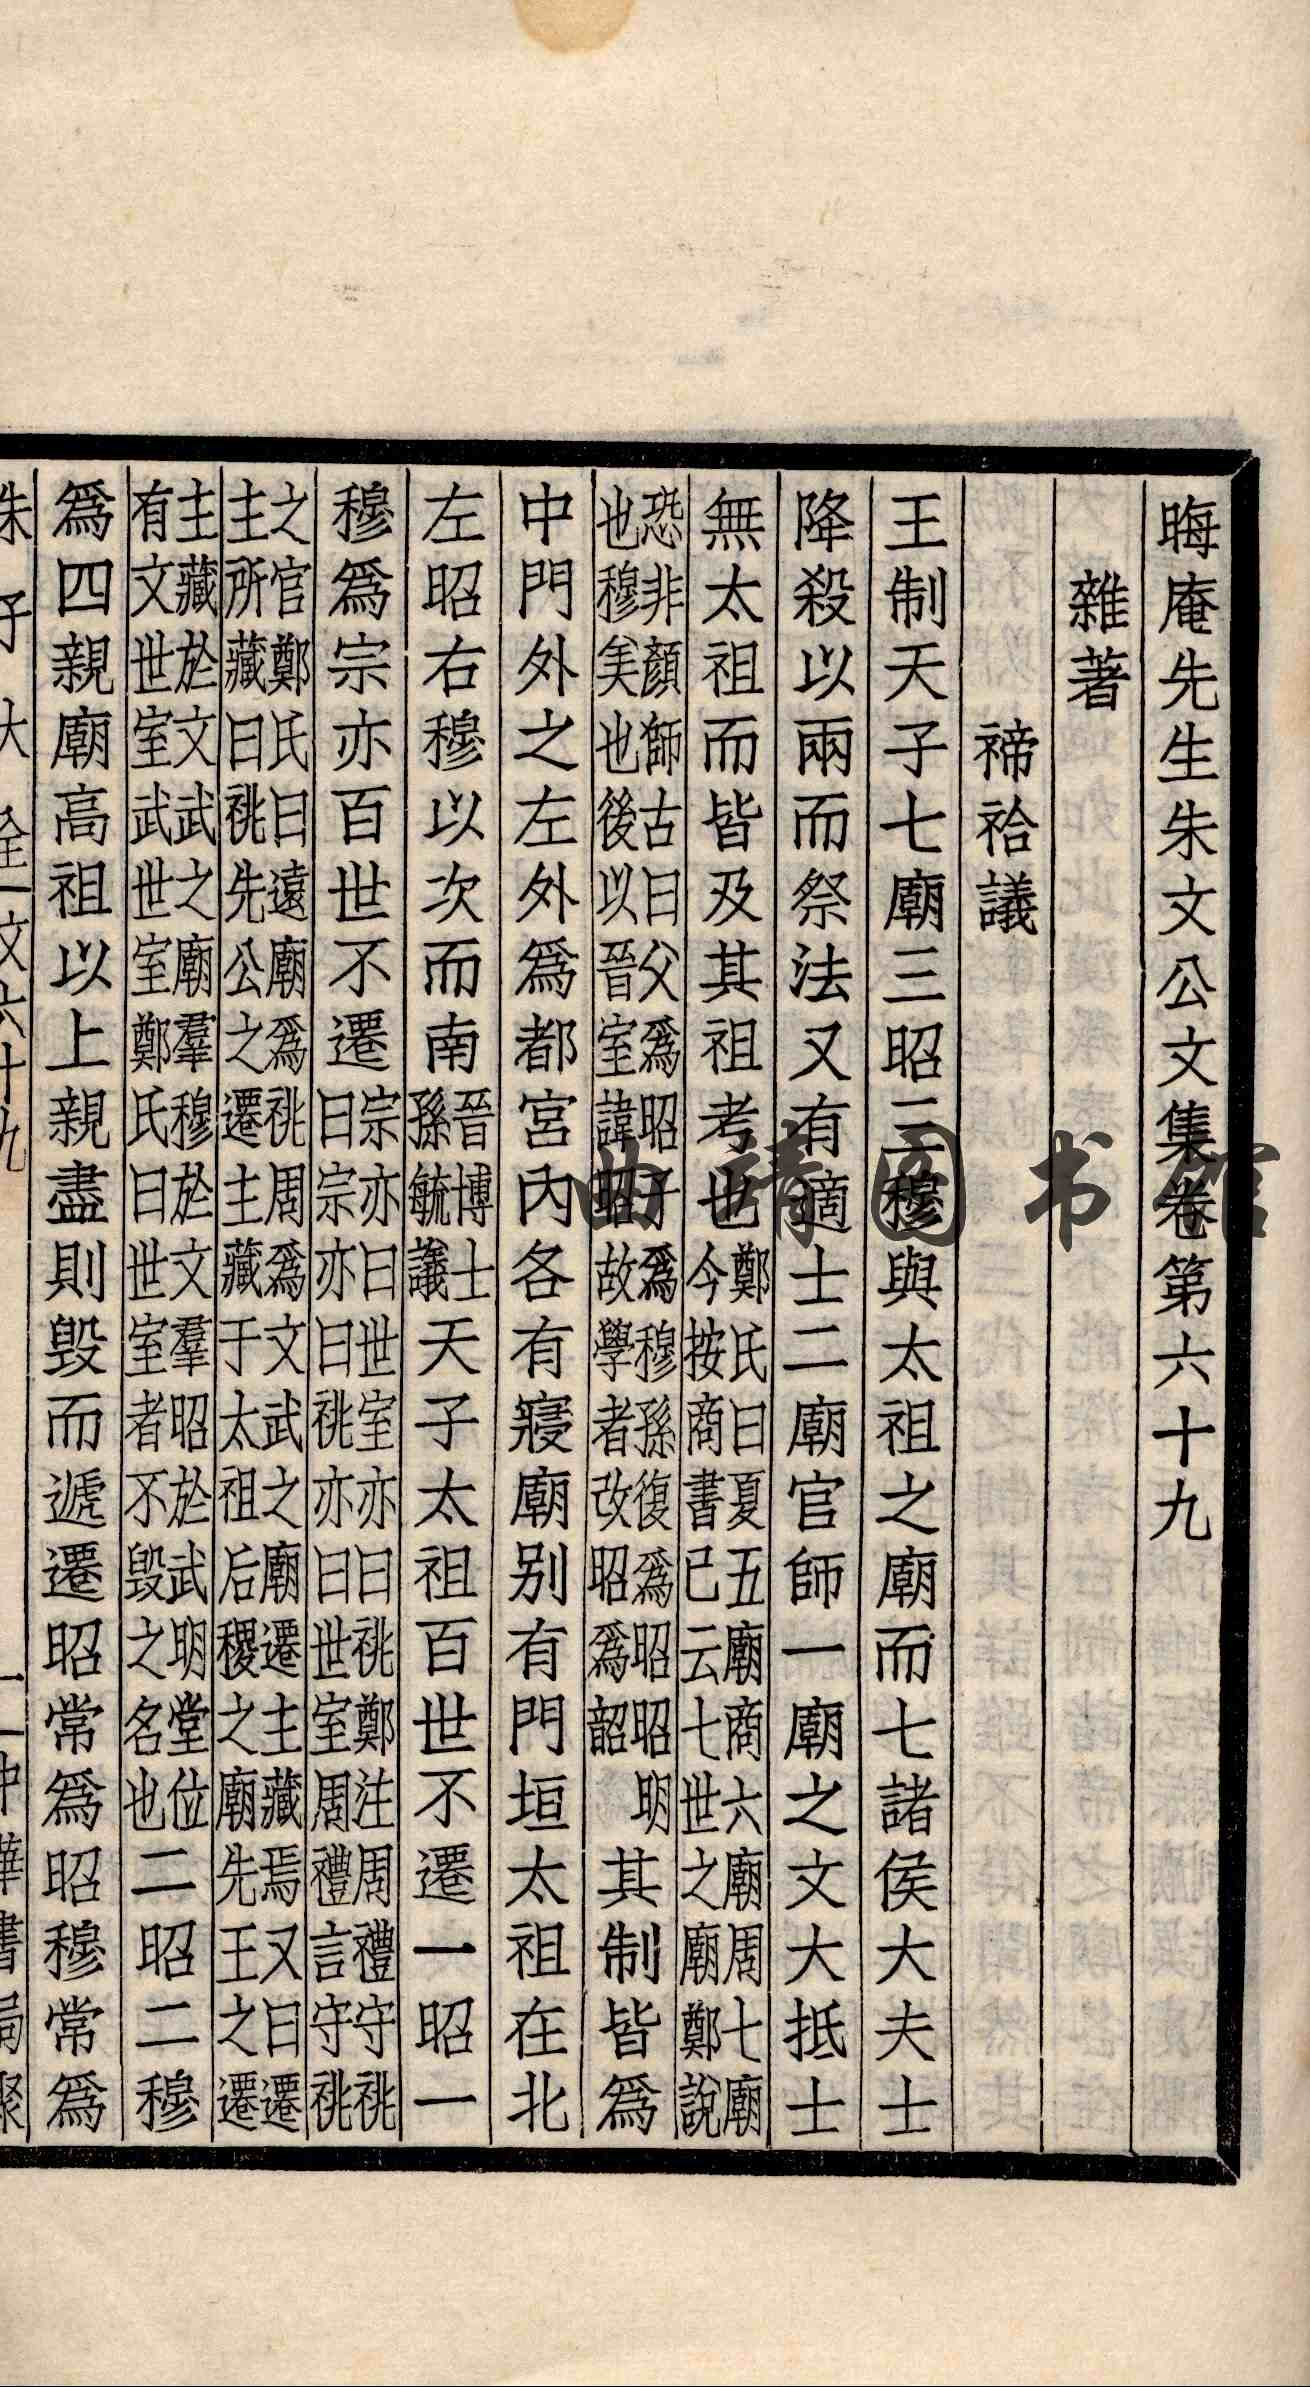 晦庵先生朱文公文集卷第六十九
雜著
禘祫議
王制天子七廟三昭三穆與太祖之廟而七諸侯大夫士
降殺以兩而祭法又有適士二廟官師一廟之文大抵士
無太祖而皆及其祖考也鄭氏曰夏五廟商六廟周七廟今按商書已云七世之廟鄭說
恐非顏師古曰父爲昭子爲穆孫復爲昭昭明也穆美也後以晉室諱昭故學者改昭爲韶其制皆爲
中門外之左外爲都宮內各有寢廟别有門垣太祖在北
左昭右穆以次而南晉博士孫毓議天子太祖百世不遷一昭一
穆爲宗亦百世不遷宗亦曰世室亦曰祧鄭注周禮守祧曰宗亦曰祧亦曰世室周禮言守祧
之官鄭氏曰遠廟爲祧周爲文武之廟遷主藏焉又曰遷主所藏曰祧先公之遷主藏于太祖后稷之廟先王之遷
主藏於文武之廟羣穆於文羣昭於武明堂位有文世室武世室鄭氏曰世室者不毁之名也二昭二穆
爲四親廟高祖以上親盡則毁而遞遷昭常爲昭穆常爲
朱子大全 文六十九 一 中華書局聚
曲靖图书馆